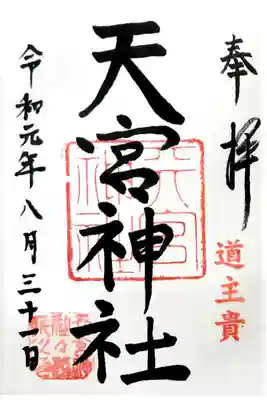 奉拝
道主貴
天宮神社
令和元年八月三十一日